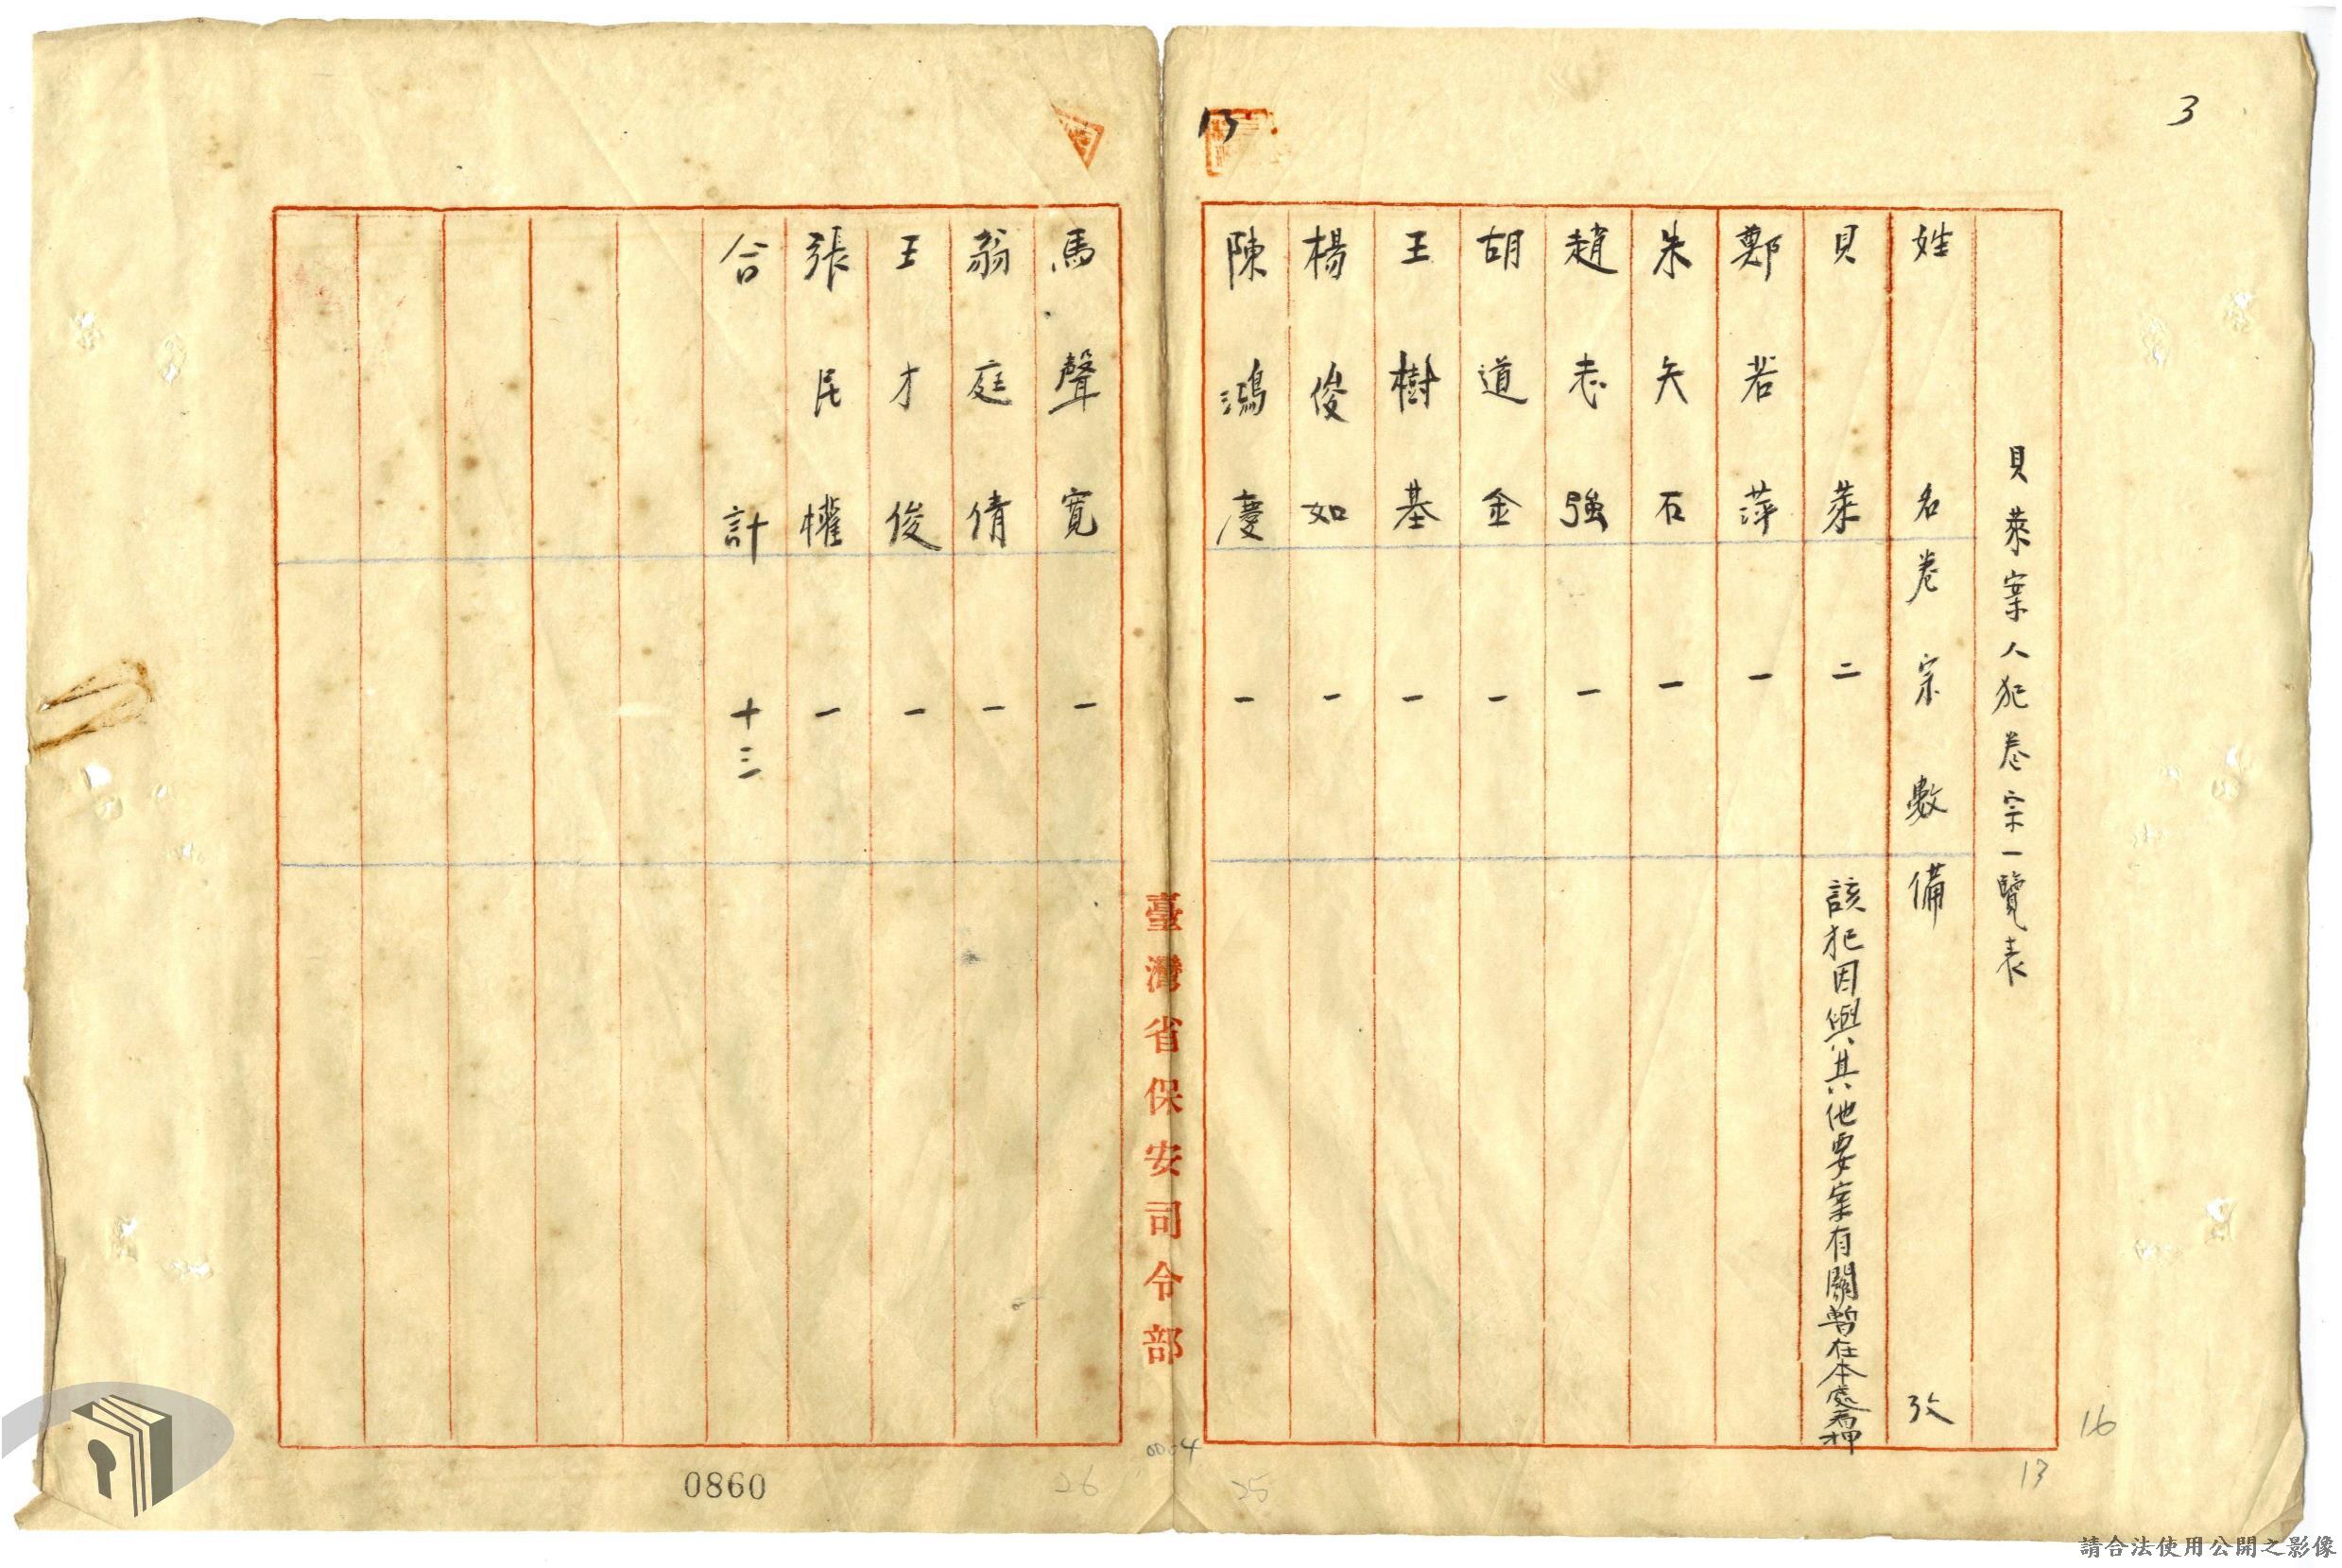 3
貝萊案人犯卷宗一覽表
姓名 卷宗數 備攷
貝萊 二 該犯因與其他要案有關暫在本處羈押
鄭若萍 一
朱矢石 一
趙志強 一
胡道金 一
王樹基 一
楊俊如 一
陳鴻慶 一
13
16
13
25
臺灣省保安司令部
0054
馬聲寬 一
翁庭倩 一
王才俊 一
張民權 一
合計 十三
26
0860
請合法使用公開之影像